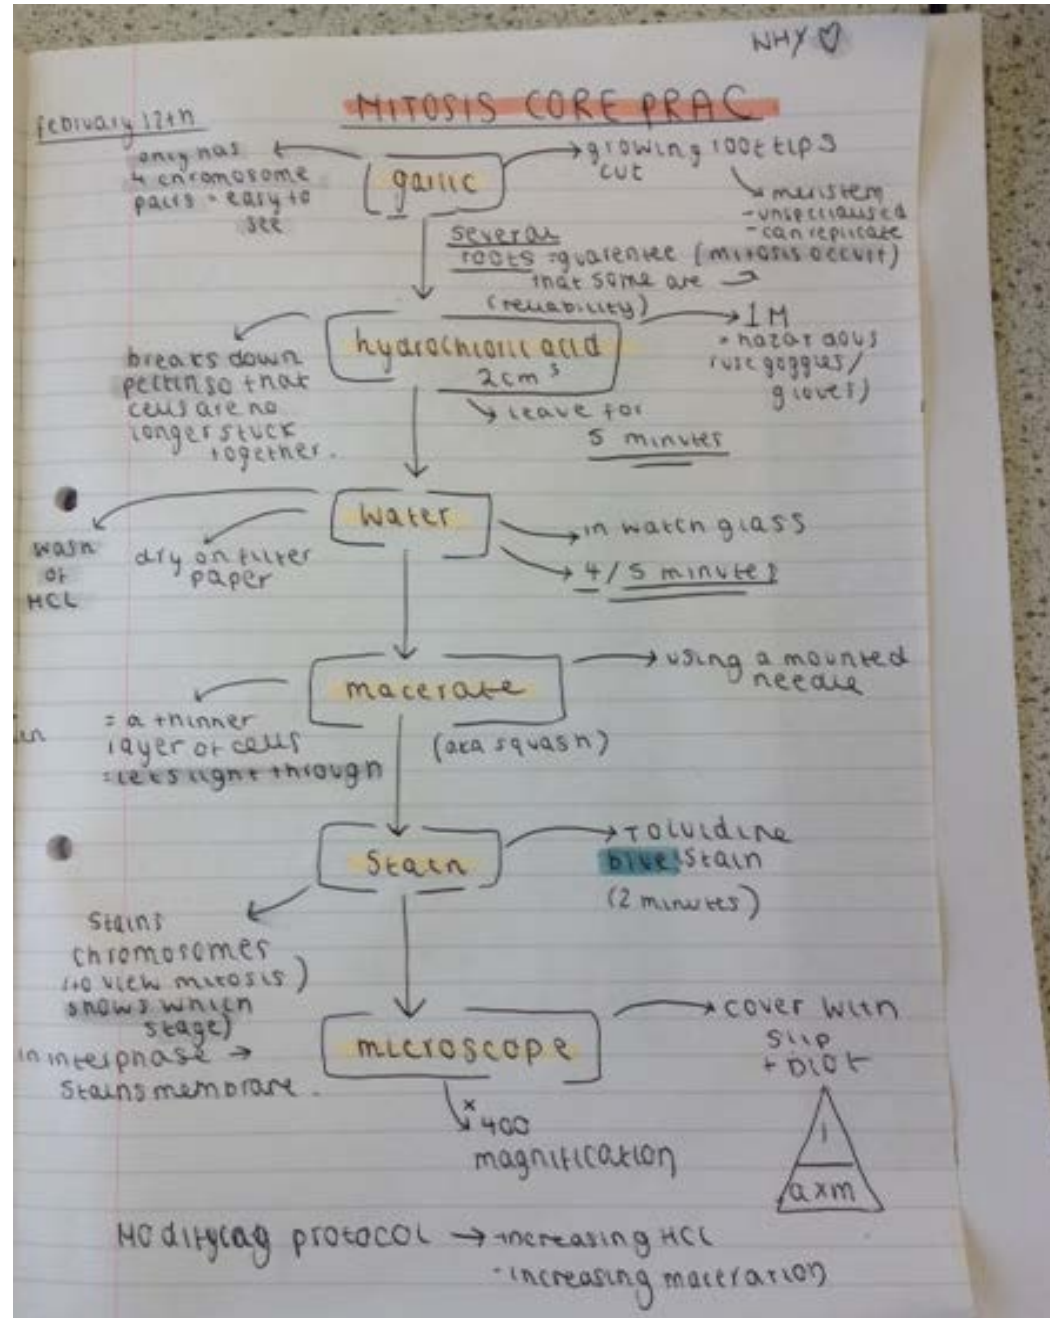 NHY ♡
MITOSIS CORE PRAC
february 12th
only has
4 chromosome
pairs = easy to
see
garlic
growing root tips
cut
meristem
- unspecialised
- can replicate
(mitosis occur)
several
roots = guarentee
that some are
(reliability)
hydrochloric acid
2cm³
1M
= hazardous
(use goggles/
gloves)
breaks down
pectin so that
cells are no
longer stuck
together.
leave for
5 minutes
water
wash
of
HCL
dry on filter
paper
in watch glass
4/5 minutes
macerate
using a mounted
needle
= a thinner
layer of cells
= lets light through
(aka squash)
Stain
Toluidine
blue stain
(2 minutes)
Stains
chromosomes
(to view mitosis)
shows which
stage)
in interphase →
stains membrane.
microscope
cover with
slip
+ blot
x
400
magnification
I
axm
Modifying protocol → - increasing HCL
- increasing maceration